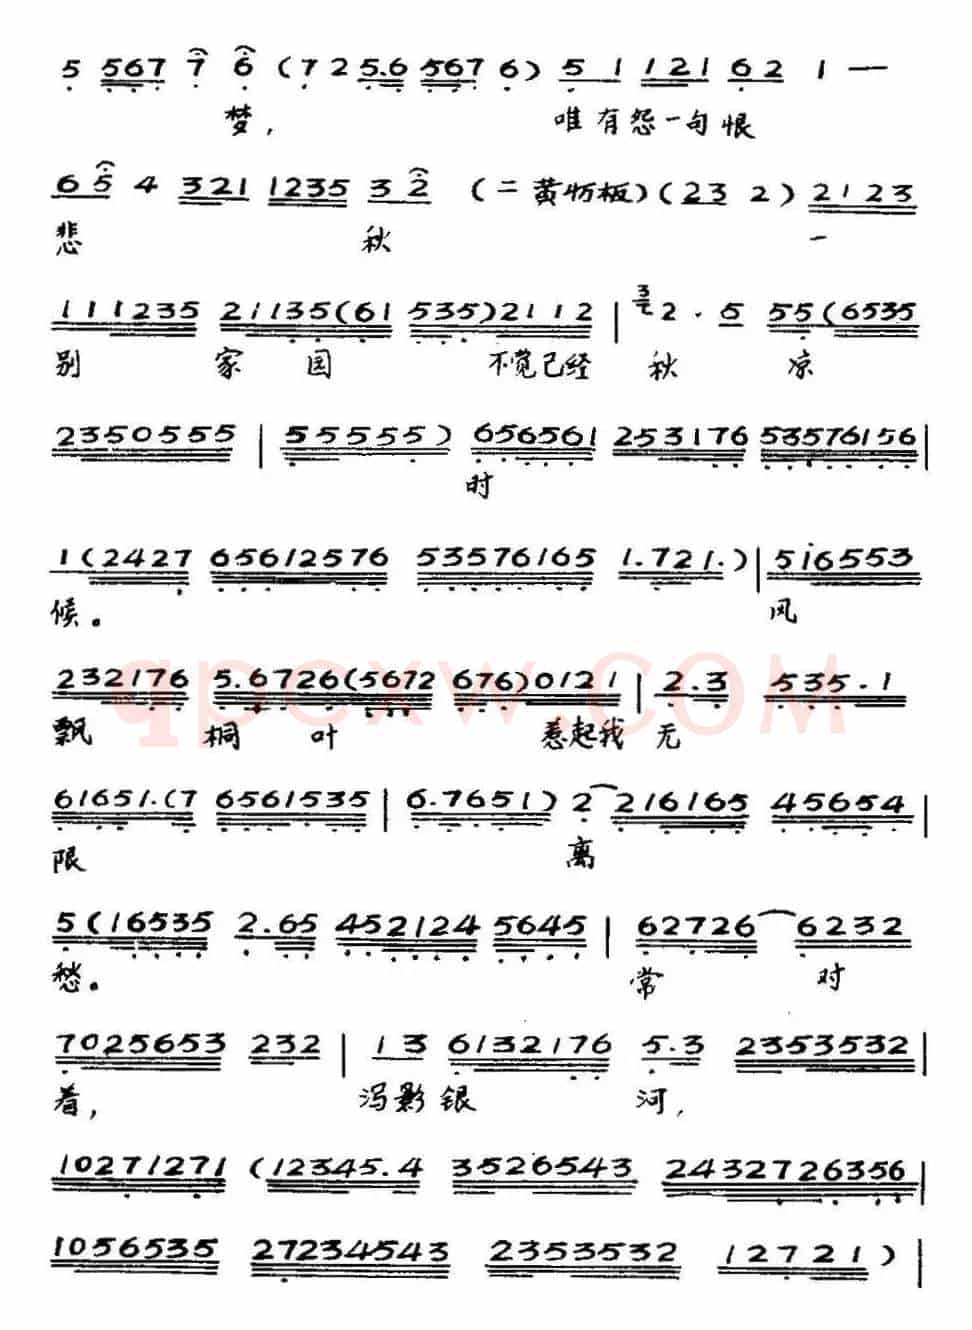 5 567 7 6 (7 2 5.6 567 6) 5 1 1121 62 1 —
梦, 唯有怨一句恨
65 4 321 1235 3 2 (二黄协板) (23 2) 2123
悲 秋 一
111235 21135(61 535)2112 | 2 . 5 55(6535
别 家 国 不觉已经 秋 凉
2350555 | 55555) 656561 253176 53576156 |
时
1(2427 65612576 53576165 1.721.) | 5i6553
候。 风
232176 5.6726(5672 676)0121 | 2.3 535.1
飘 桐 叶 惹起我 无
61651.(7 6561535 | 6.7651) 2 216165 45654 |
限 离
5(16535 2.65 452124 5645 | 62726 6232
愁。 常 对
7025653 232 | 13 6132176 5.3 2353532 |
着, 泻影银 河,
1027127 1 (12345.4 3526543 2432726356 |
1056535 27234543 2353532 12721) |
qpcxw.COM